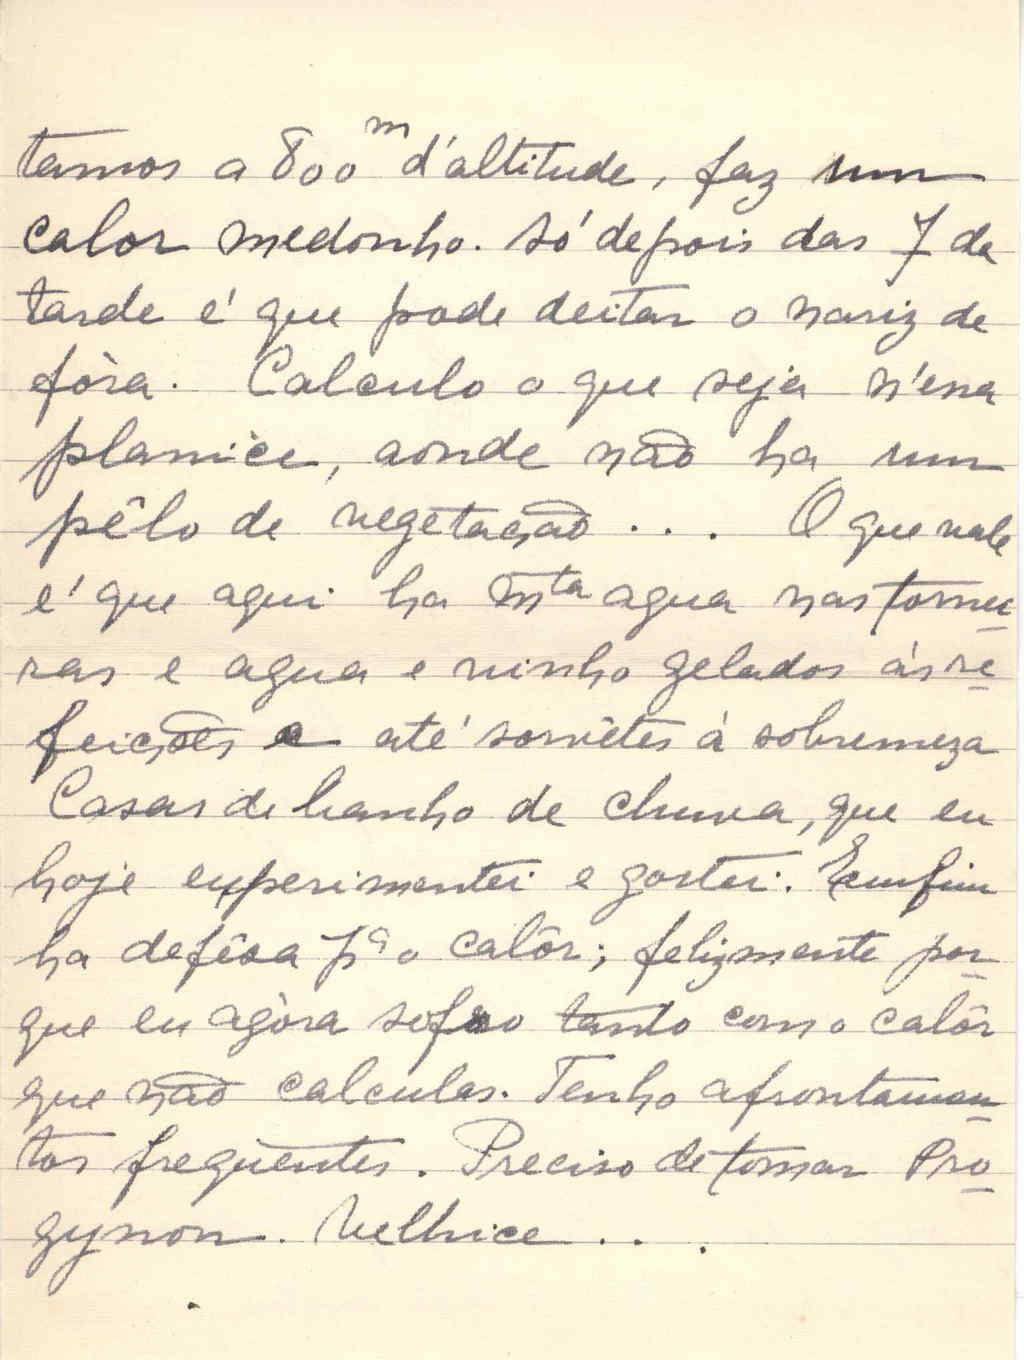 tamos a 800m d'altitude, faz um
calor medonho. Só depois das 7 da
tarde é que pode deitar o nariz de
fòra. Calculo o que seja n'essa
planicie, aonde não ha um
pêlo de vegetação... O que vale
é que aqui ha mta agua nas tornei-
ras e agua e vinho gelados ás re-
feições e até sorvêtes á sobremeza
Casas de banho de chuva, que eu
hoje experimentei e gostei. Emfim
ha defêsa pa o calôr; felizmente por-
que eu agòra sofro tanto com o calôr
que não calculas. Tenho afrontamen-
tos freqüentes. Preciso de tomar Pro-
gynon. Velhice...